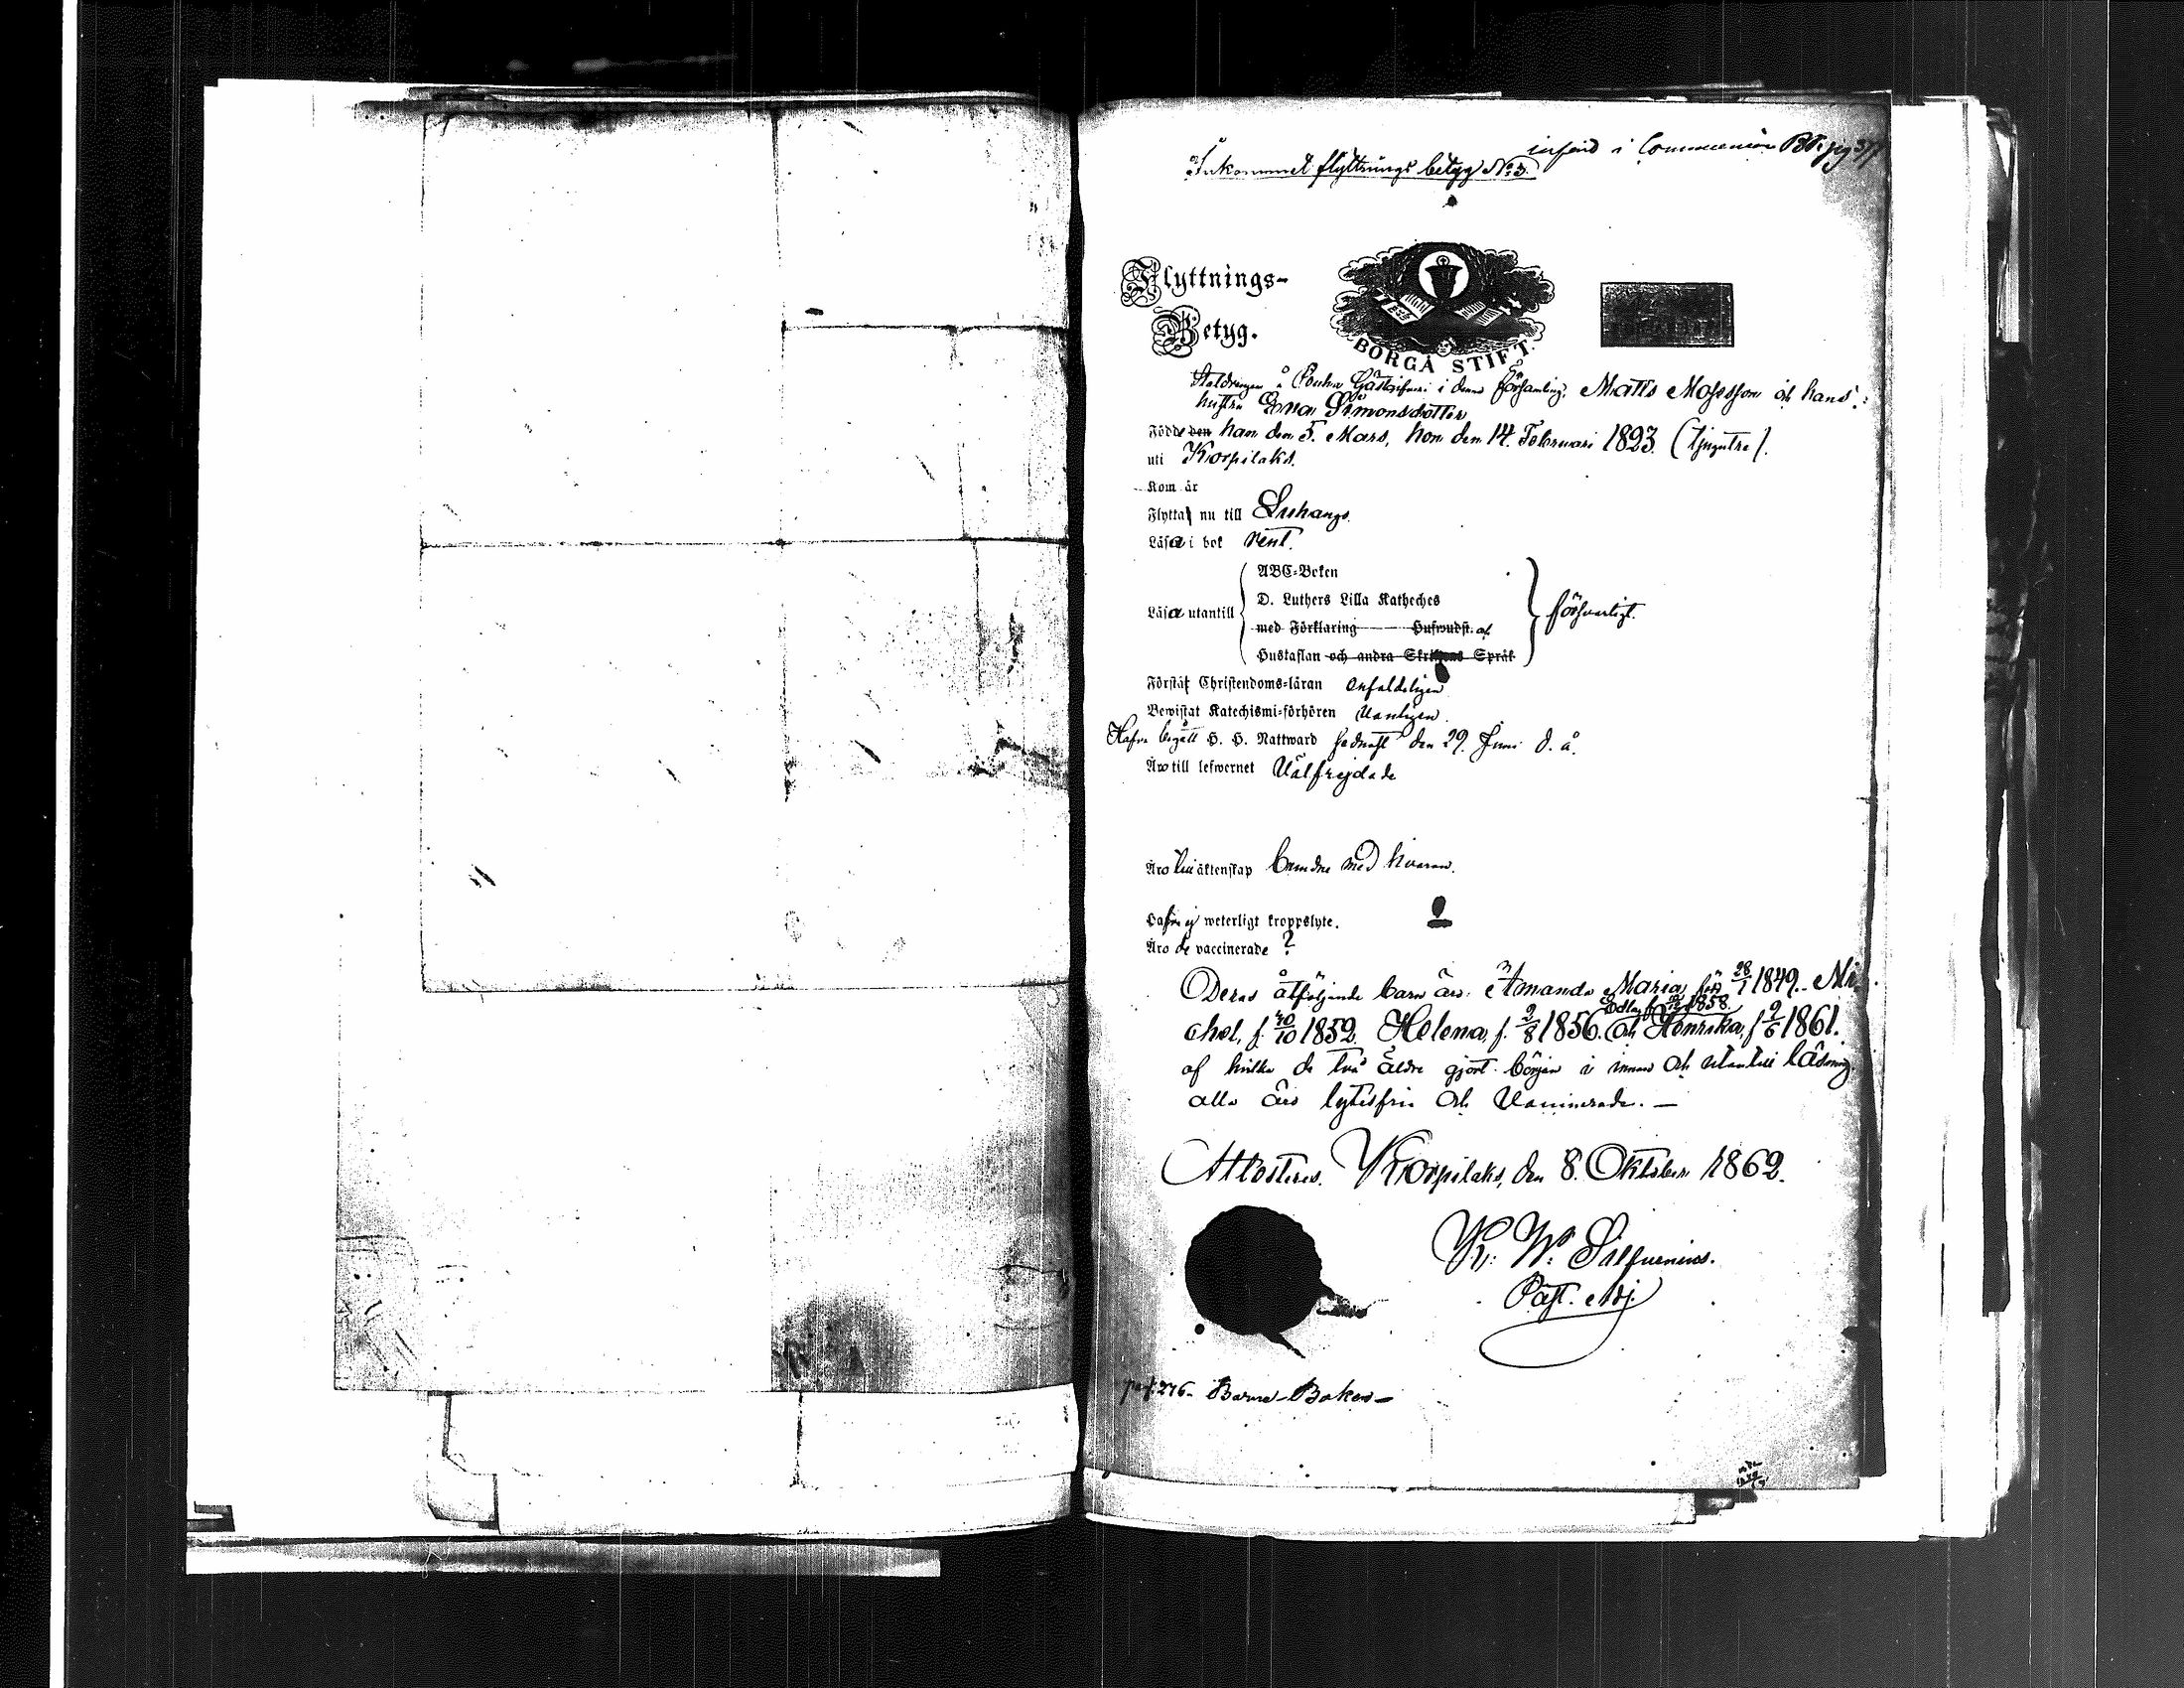 införd i Communion Bk. pg 377
Inkommet flyttnings betyg No 3.
Flyttnings-
Betyg.
BORGÅ STIFT.
å Gästgifveri i denna församling, Matts Mosesson och hans
hustru Eva Simonsdotter
Född den han den 5. Mars, hon den 14. Februari 1823 (tjugutre).
uti Korpilaks.
Kom är
Flytta nu till Luhango.
Läsa i bok rent.
ABC-Boken
D. Luthers Lilla Katheches
Läsa utantill
försvarligt.
med Förklaring Hufwudst. af
Hustaflan och andra Skriftens Språk
Förstå Christendoms-läran enfaldeligen
Bewistat Katechismi-förhören vanligen.
Hafva begått H. H. Nattward sednast den 29. Juni d. å.
Äro till lefwernet Välfrejdade
Äro till äktenskap bundne med hvaran.
Hafva ej weterligt kroppslyte.
Äro de vaccinerade ?
Deras åtföljande barn äro: Amanda Maria, född 28/1 1849. Mi-
1858.
chel, f. 1852. Helena, f. 2/8 1856. och Henrika, f 2/6 1861.
af hvilka de två äldre gjort början i innan och utantill läsning,
alla äro lytesfria och Vaccinerade. —
Attesteras. Korpilaks, den 8. Oktober 1862.
K. W. Salvenius.
Past. Adj.
pag. 276. Barne-Boken